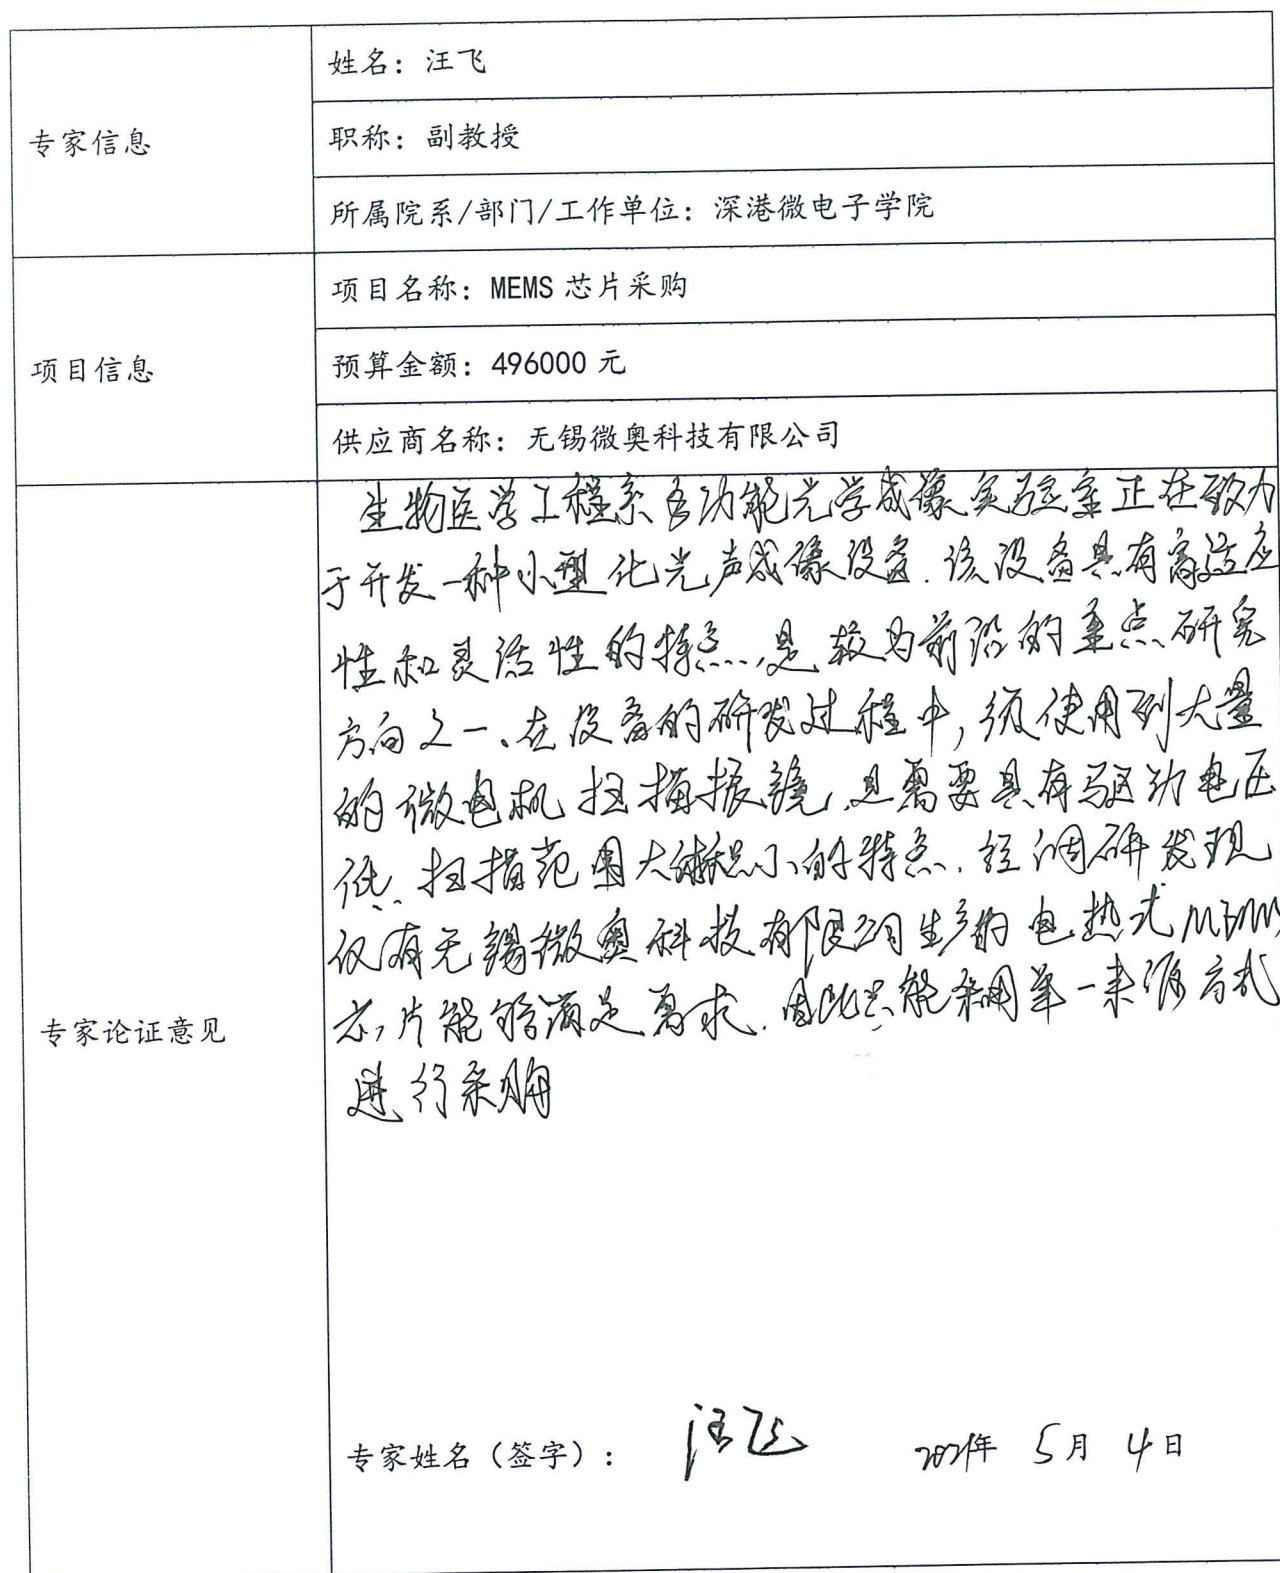 姓名：汪飞
专家信息
职称：副教授
所属院系/部门/工作单位：深港微电子学院
项目名称：MEMS 芯片采购
项目信息
预算金额：496000 元
供应商名称：无锡微奥科技有限公司
生物医学工程系多功能光学成像实验室正在致力
于开发一种小型化光声成像设备.该设备具有高适应
性和灵活性的特点,是较为前沿的重点研究
方向之一、在设备的研发过程中,须使用到大量
的微电机扫描振镜,且需要具有驱动电压
低、扫描范围大体积小的特点.经调研发现
仅有无锡微奥科技有限公司生产的电热式MEMS
芯片能够满足需求.因此只能采用单一来源方式
进行采购
专家论证意见
专家姓名（签字）：汪飞 2021年 5月 4日